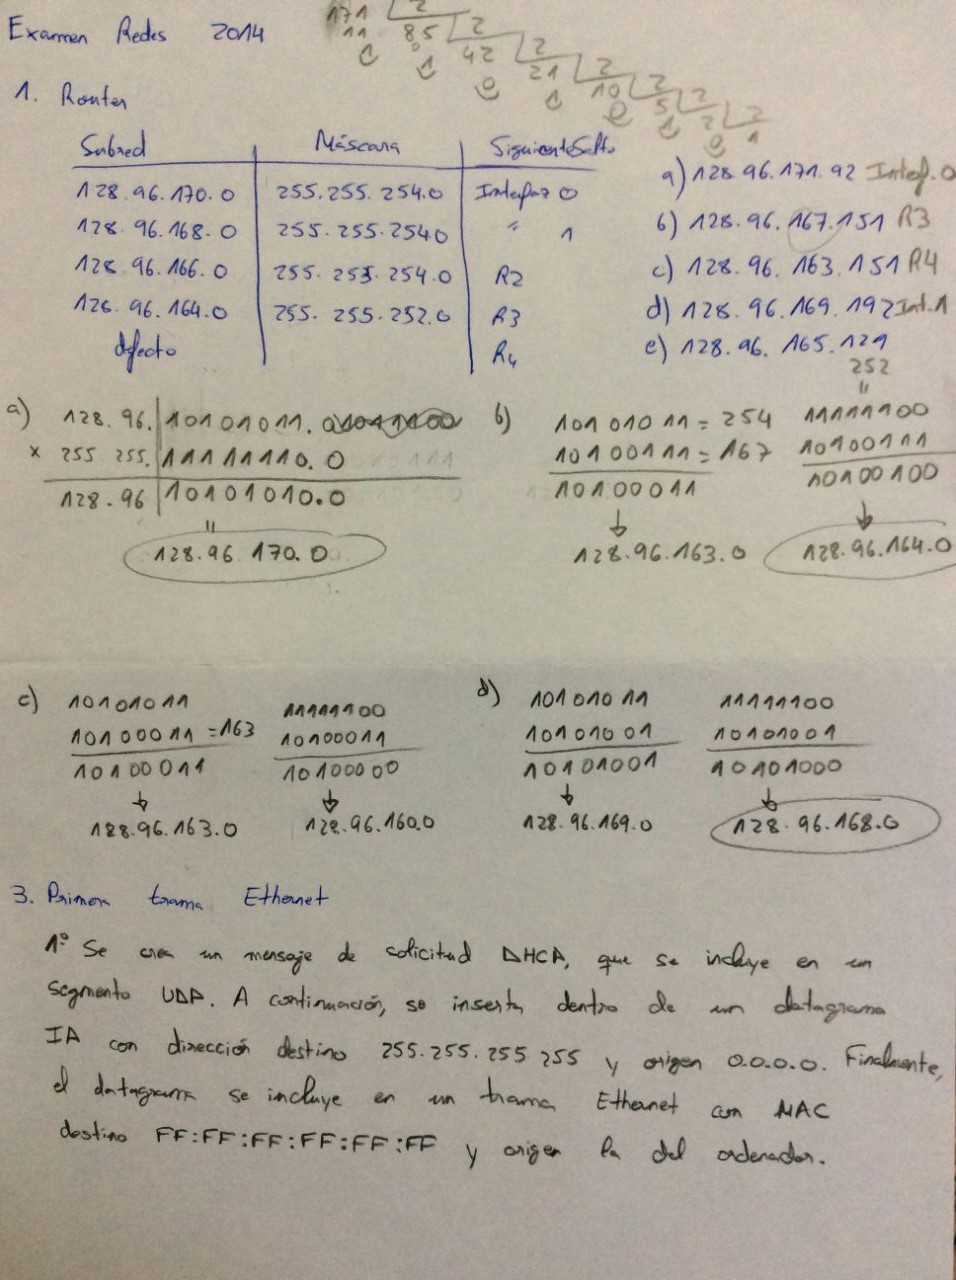 Examen Redes 2014
171 2
11 85 2
1 0 42 2
1 21 2
0 10 2
1 5 2
0 2 2
1 1
0
1. Router
Subred Máscara Siguiente Salto
128.96.170.0 255.255.254.0 Interfaz 0
128.96.168.0 255.255.2540 " 1
128.96.166.0 255.255.254.0 R2
128.96.164.0 255.255.252.0 R3
defecto R4
a) 128.96.171.92 Interf.0
b) 128.96.167.151 R3
c) 128.96.163.151 R4
d) 128.96.169.192 Int.1
e) 128.96.165.129
a) 128.96.|10101011.0
x 255 255.|11111110.0
128.96|10101010.0
"
128.96.170.0
b) 10101011 = 254
10100111 = 167
10100011
↓
128.96.163.0
252
"
11111100
10100111
10100100
↓
128.96.164.0
c) 10101011
10100011 = 163
10100011
↓
128.96.163.0
11111100
10100011
10100000
↓
128.96.160.0
d) 10101011
10101001
10101001
↓
128.96.169.0
11111100
10101001
10101000
↓
128.96.168.0
3. Primera trama Ethernet
1º Se crea un mensaje de solicitud DHCP, que se incluye en un
segmento UDP. A continuación, se inserta dentro de un datagrama
IP con dirección destino 255.255.255 255 y origen 0.0.0.0. Finalmente,
el datagrama se incluye en un trama Ethernet con MAC
destino FF:FF:FF:FF:FF:FF y origen la del ordenador.